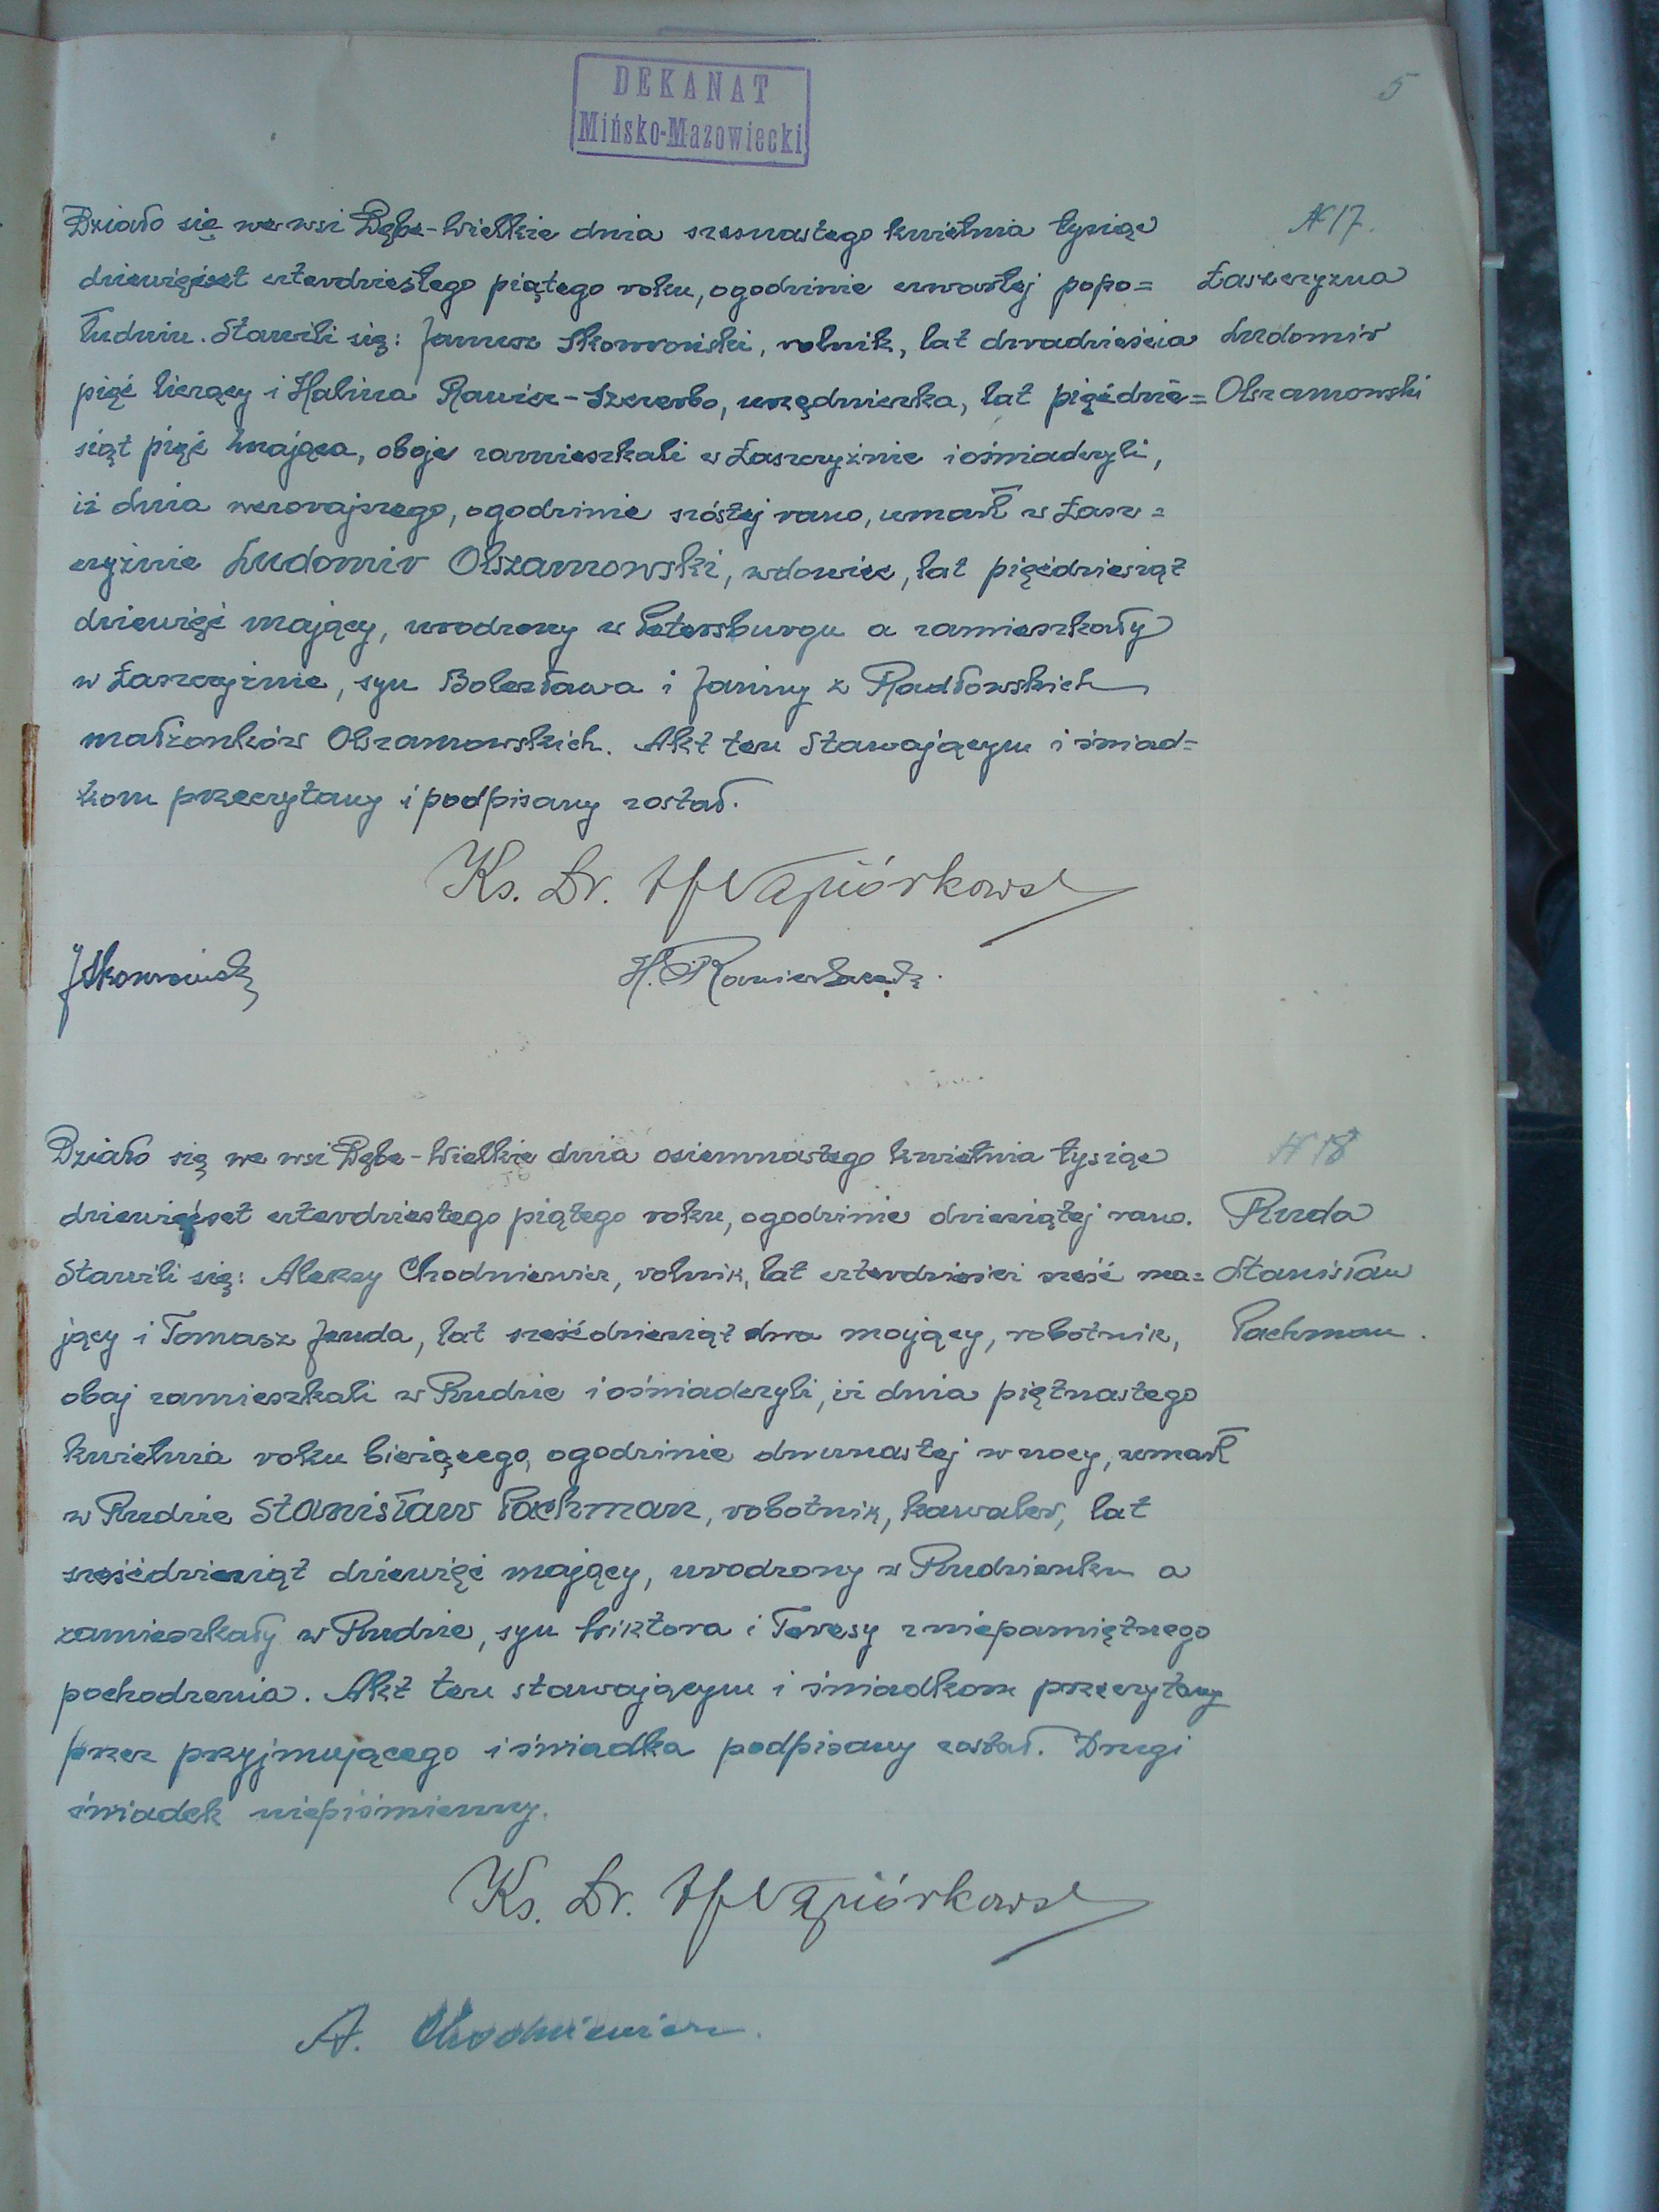 DEKANAT
Mińsko-Mazowiecki
5
Działo się we wsi Dębe-Wielkie dnia szesnastego kwietnia tysiąc
dziewięćset czterdziestego piątego roku, o godzinie czwartej popo=
łudniu. Stawili się: Janusz Skowroński, rolnik, lat dwadzieścia
pięć liczący i Halina Rawicz-Szczerbo, urzędniczka, lat pięćdzie=
siąt pięć mająca, oboje zamieszkali w Łaszczyźnie i oświadczyli,
iż dnia wczorajszego, o godzinie szóstej rano, umarł w Łasz=
czyźnie Ludomir Olszamowski, wdowiec, lat pięćdziesiąt
dziewięć mający, urodzony w Petersburgu a zamieszkały
w Łaszczyźnie, syn Bolesława i Janiny z Radłowskich
małżonków Olszamowskich. Akt ten stawającym i świad=
kom przeczytany i podpisany został.
N 17.
Łaszczyzna
Ludomir
Olszamowski
Ks. Dr. Napiórkowski
JSkowroński
H. Rawicz
Działo się we wsi Dębe-Wielkie dnia osiemnastego kwietnia tysiąc
dziewięćset czterdziestego piątego roku, o godzinie dziewiątej rano.
Stawili się: Aleksy Chodniewicz, rolnik, lat czterdzieści sześć ma=
jący i Tomasz Jenda, lat sześćdziesiąt dwa mający, robotnik,
obaj zamieszkali w Rudzie i oświadczyli, iż dnia piętnastego
kwietnia roku bieżącego, o godzinie dwunastej w nocy, umarł
w Rudzie Stanisław Pachman, robotnik, kawaler, lat
sześćdziesiąt dziewięć mający, urodzony w Rudzienku a
zamieszkały w Rudzie, syn Wiktora i Teresy z niepamiętnego
pochodzenia. Akt ten stawającym i świadkom przeczytany
przez przyjmującego i świadka podpisany został. Drugi
świadek niepiśmienny.
N 18
Ruda
Stanisław
Pachman.
Ks. Dr. Napiórkowski
A. Chodniewicz.